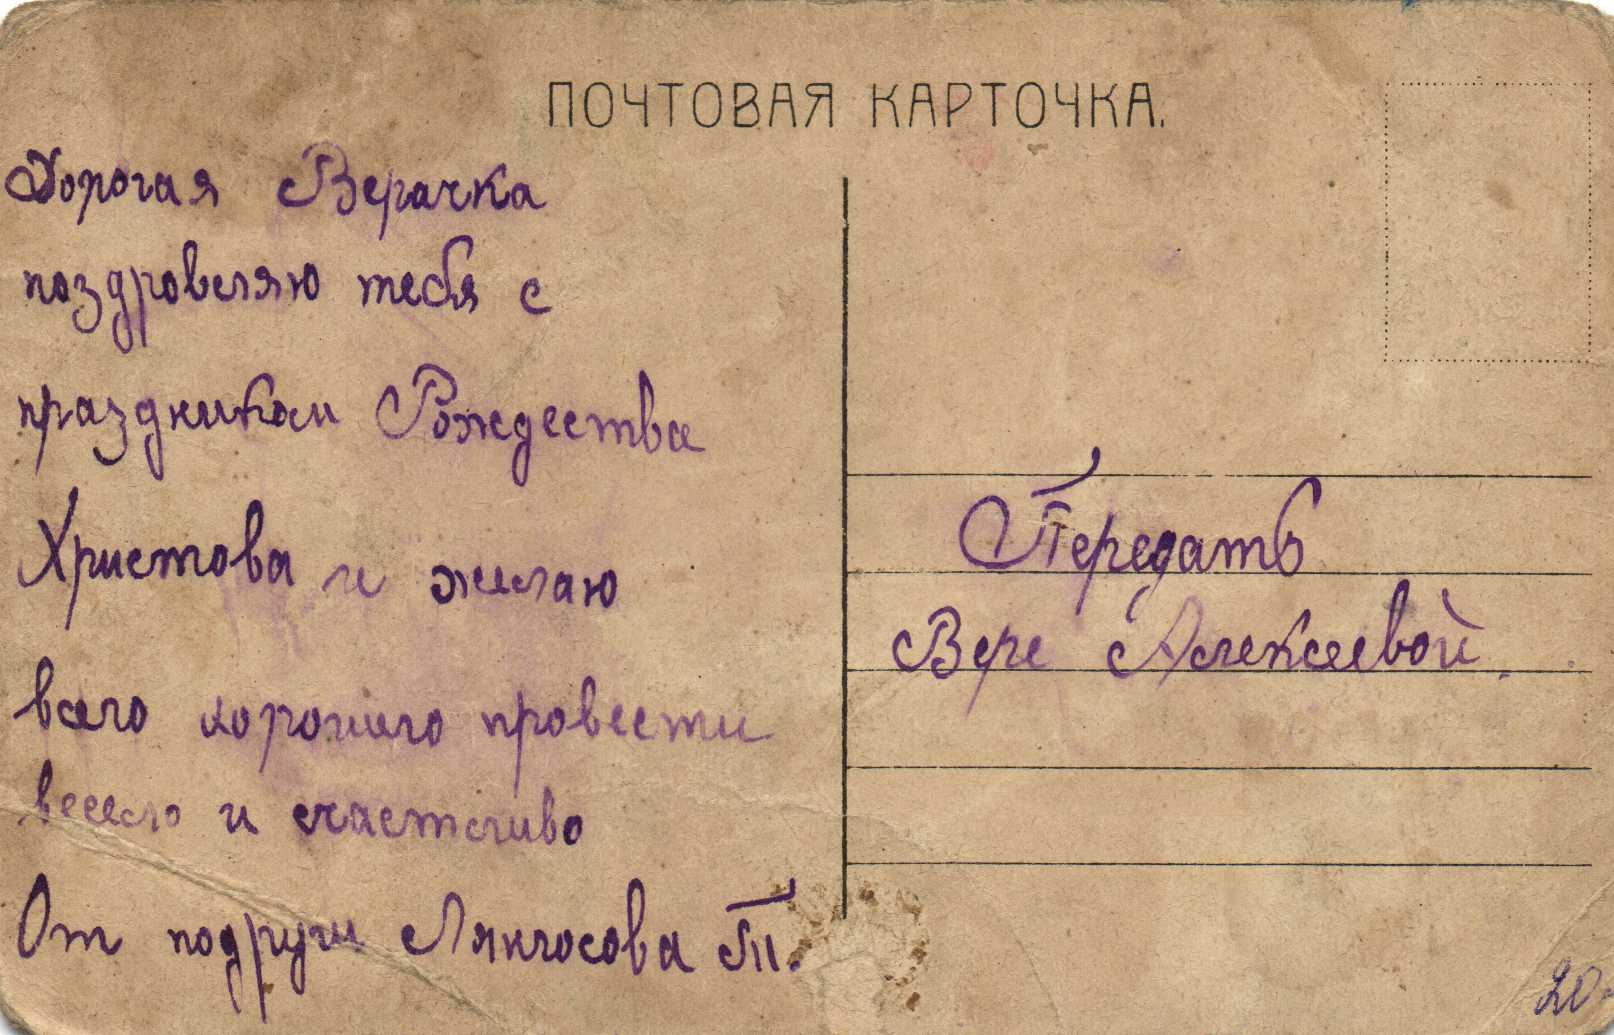 ПОЧТОВАЯ КАРТОЧКА.
Дорогая Верачка
поздровляю тебя с
праздником Рождества
Христова и желаю
всего хорошего провести
весело и счастливо
От подруги Т.
Передать
Вере Алексеевой.
20